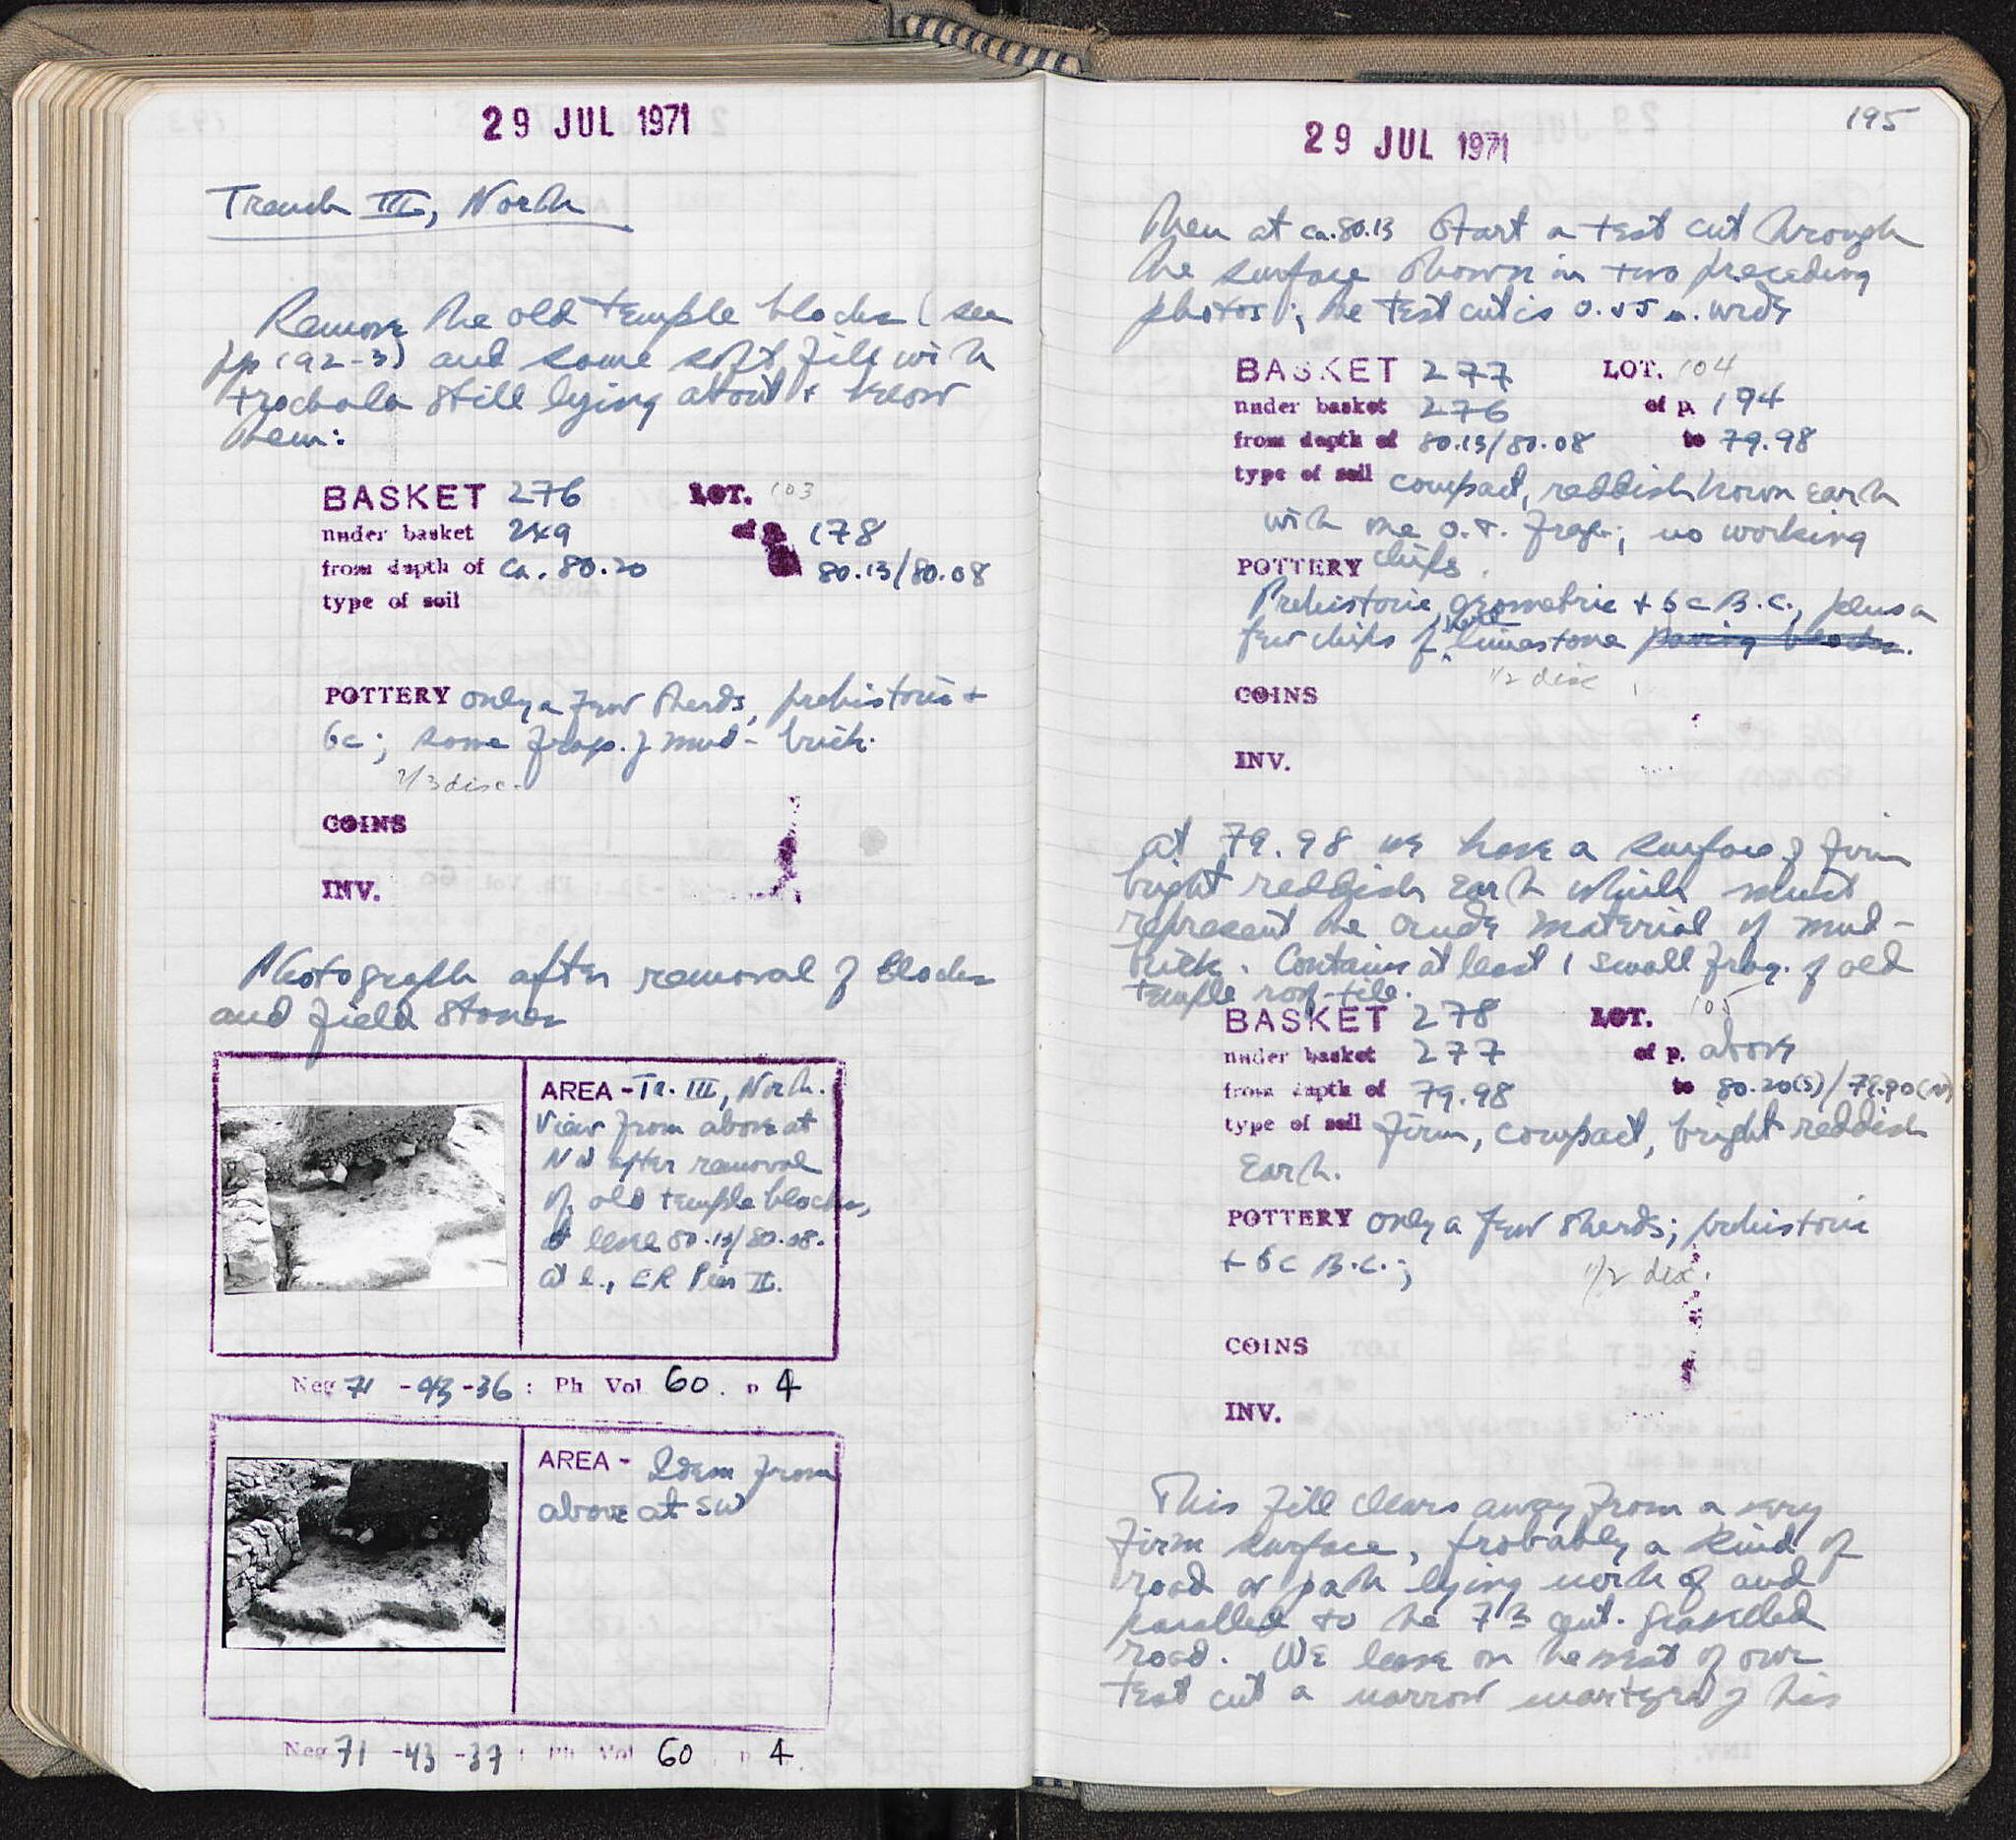 29 JUL 1971
Trench III, North
Remove the old temple blocks (see
pp 192-3) and some soft fill with
trochala still lying about & below
them:
BASKET 276 LOT. 103
under basket 249 of p. 178
from depth of ca. 80.20 80.13/80.08
type of soil
POTTERY only a few sherds, prehistoric +
6c; some frags. of mud-brick.
2/3 disc.
COINS
INV.
Photograph after removal of blocks
and field stones
AREA - Tr. III, North.
View from above at
NW after removal
of old temple blocks,
at level 80.13/80.08.
at l., ER Pier II.
Neg 71 -43 -36 : Ph Vol 60. p 4
AREA - Idem from
above at SW
Neg 71 -43 -37 : Ph Vol 60 p 4.
195
29 JUL 1971
Then at ca. 80.13 start a test cut through
the surface shown in two preceding
photos; the test cut is 0.55 m. wide
BASKET 277 LOT. 104
under basket 276 of p. 194
from depth of 80.13/80.08 to 79.98
type of soil compact, reddish brown earth
with one o.t. frag.; no working
chips.
POTTERY
Prehistoric, geometric + 6c B.C., plus a
few chips of hard limestone paving blocks.
1/2 disc
COINS
INV.
at 79.98 we have a surface of firm
bright reddish earth which must
represent the crude material of mud-
brick. Contains at least 1 small frag. of old
temple roof-tile.
BASKET 278 LOT. 105
under basket 277 of p. above
from depth of 79.98 to 80.20(S)/79.90(N)
type of soil firm, compact, bright reddish
earth.
POTTERY only a few sherds; prehistoric
+ 6c B.C.; 1/2 disc.
COINS
INV.
This fill clears away from a very
firm surface, probably a kind of
road or path lying north of and
parallel to the 7th cent. gravelled
road. We leave on the west of our
test cut a narrow martyra of this